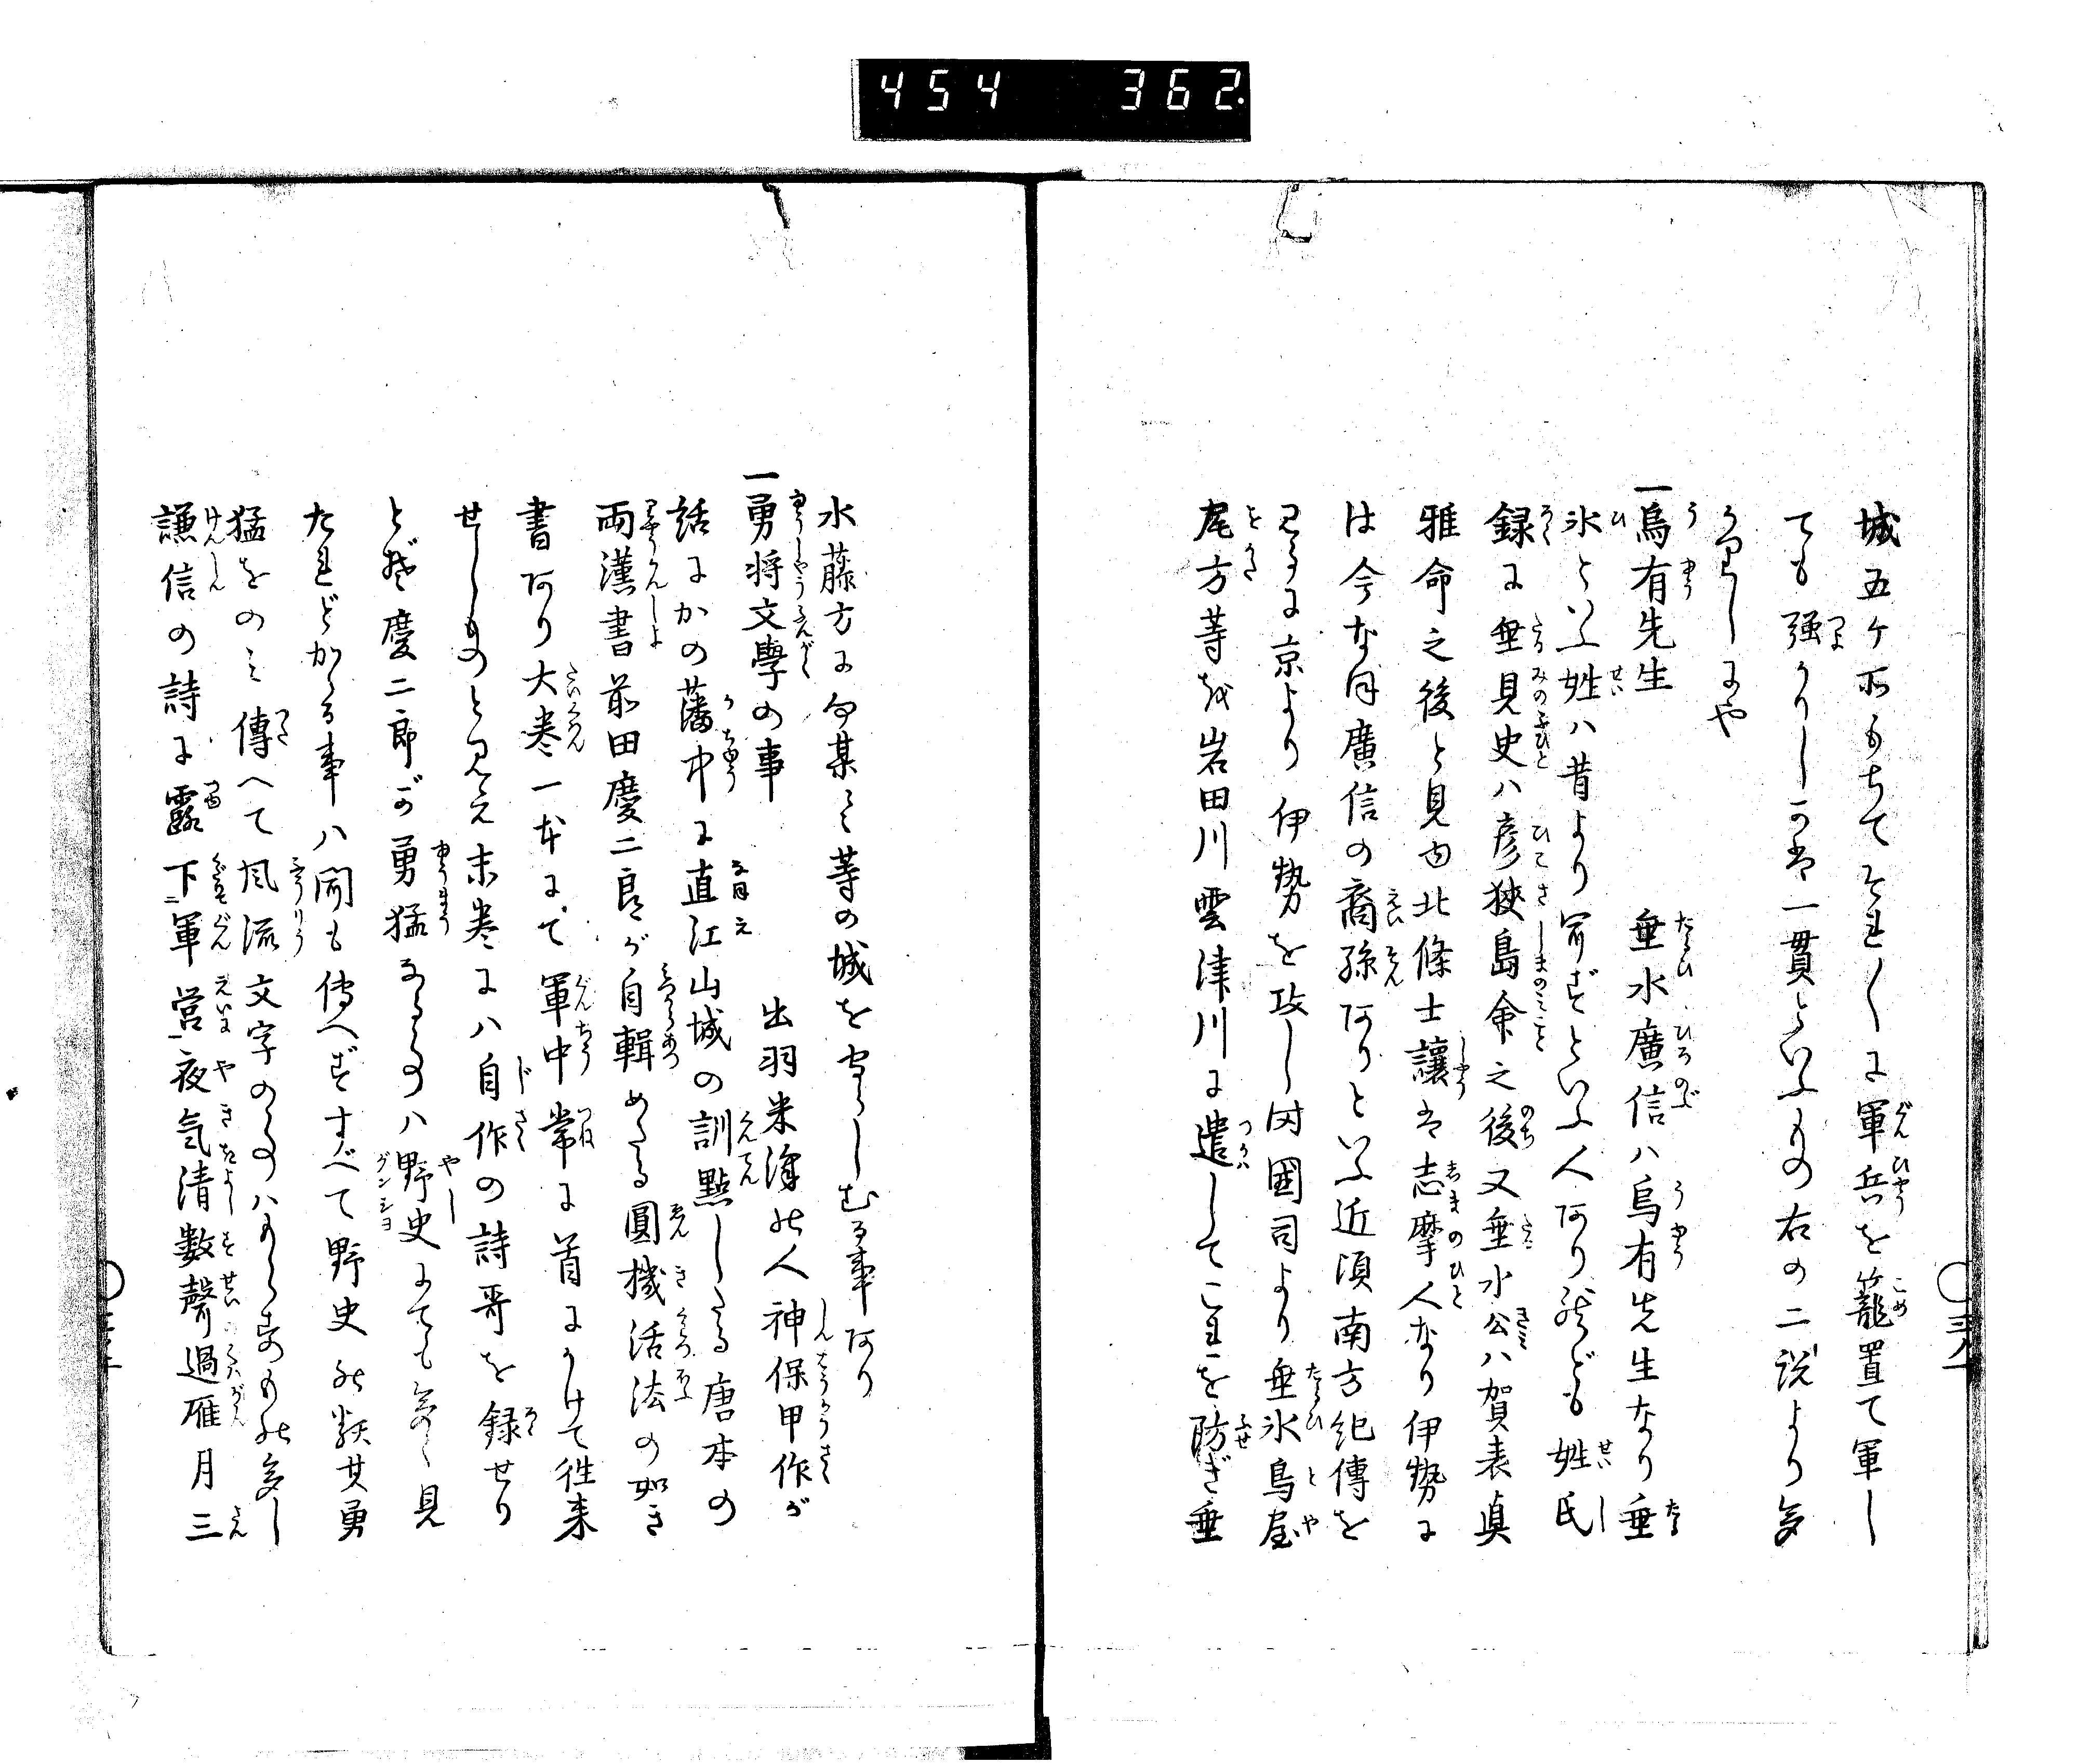 454 362.
城五ケ所もちてそれ〳〵に軍兵を籠置て軍し
ても強かりし一貫といふもの右の二説より多
かりしにや
一烏有先生 垂水廣信ハ烏有先生なり垂
水といふ姓ハ昔より有ずといふ人あり然ども姓氏
録に垂見史ハ彦狹島命之後又垂水公ハ賀表真
雅命之後と見ゆ北條士讓は志摩人なり伊勢に
は今な同廣信の裔孫ありといふ近頃南方紀傳を
に京より伊勢を攻し時國司より垂水鳥屋
尾方等を岩田川雲津川に遣してこれを防ぎ垂
水藤方に向某々等の城を守らしむる事あり
一勇将文學の事 出羽米澤の人神保甲作が
話にかの藩中に直江山城の訓點したる唐本の
両漢書前田慶二良が自輯めたる圓機活法の如き
書あり大巻一本にて軍中常に首にかけて往来
せしものと見え末巻にハ自作の詩哥を録せり
とぞ慶二郎が勇猛なるものハ野史にても多く見
たれどかゝる事ハ聞も傳へずすべて野史の類其勇
猛をのミ傳へて風流文字のものハもらせるもの多し
謙信の詩に露下軍営夜気清數聲過雁月三